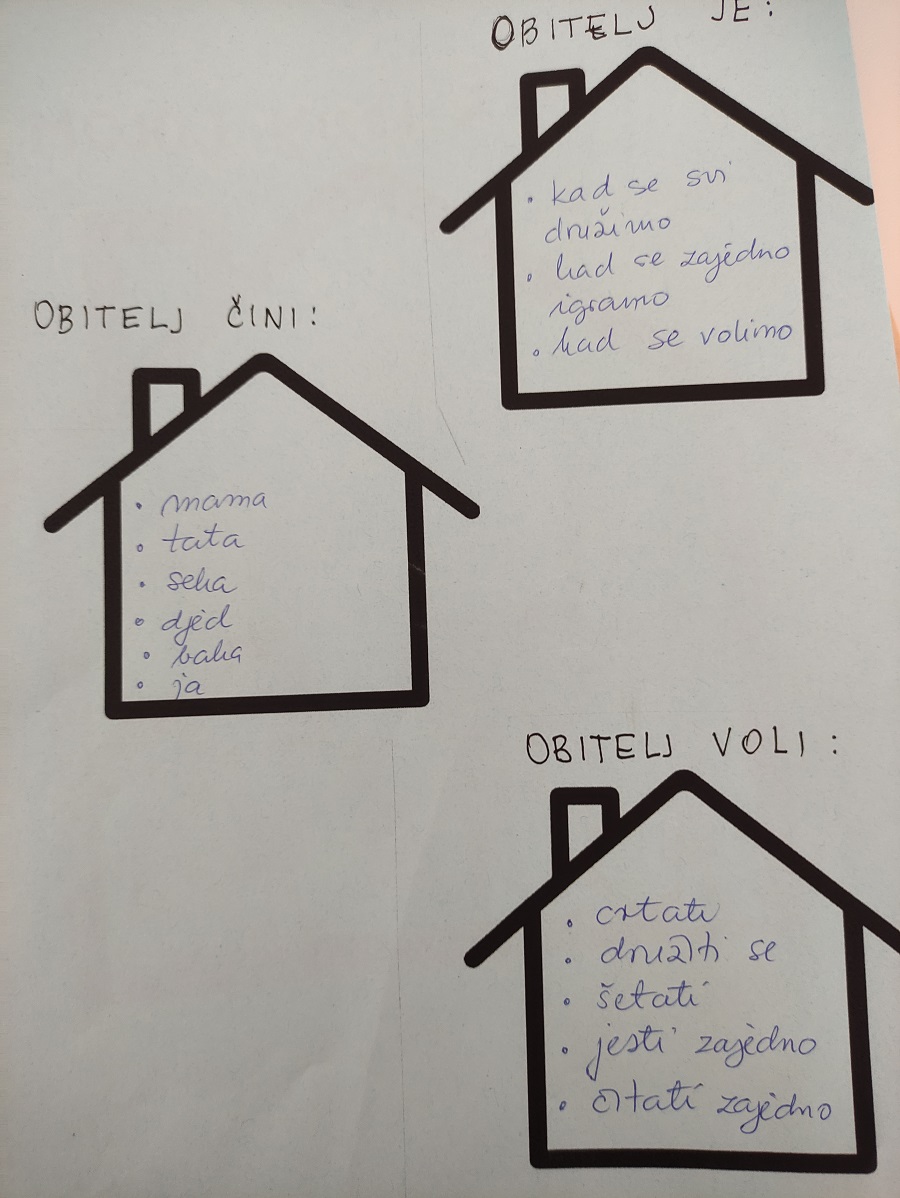 OBITELJ JE:
• kad se svi
družimo
• kad se zajedno
igramo
• kad se volimo
OBITELJ ČINI:
• mama
• tata
• seka
• djed
• baka
• ja
OBITELJ VOLI:
• crtati
• družiti se
• šetati
• jesti zajedno
• čitati zajedno